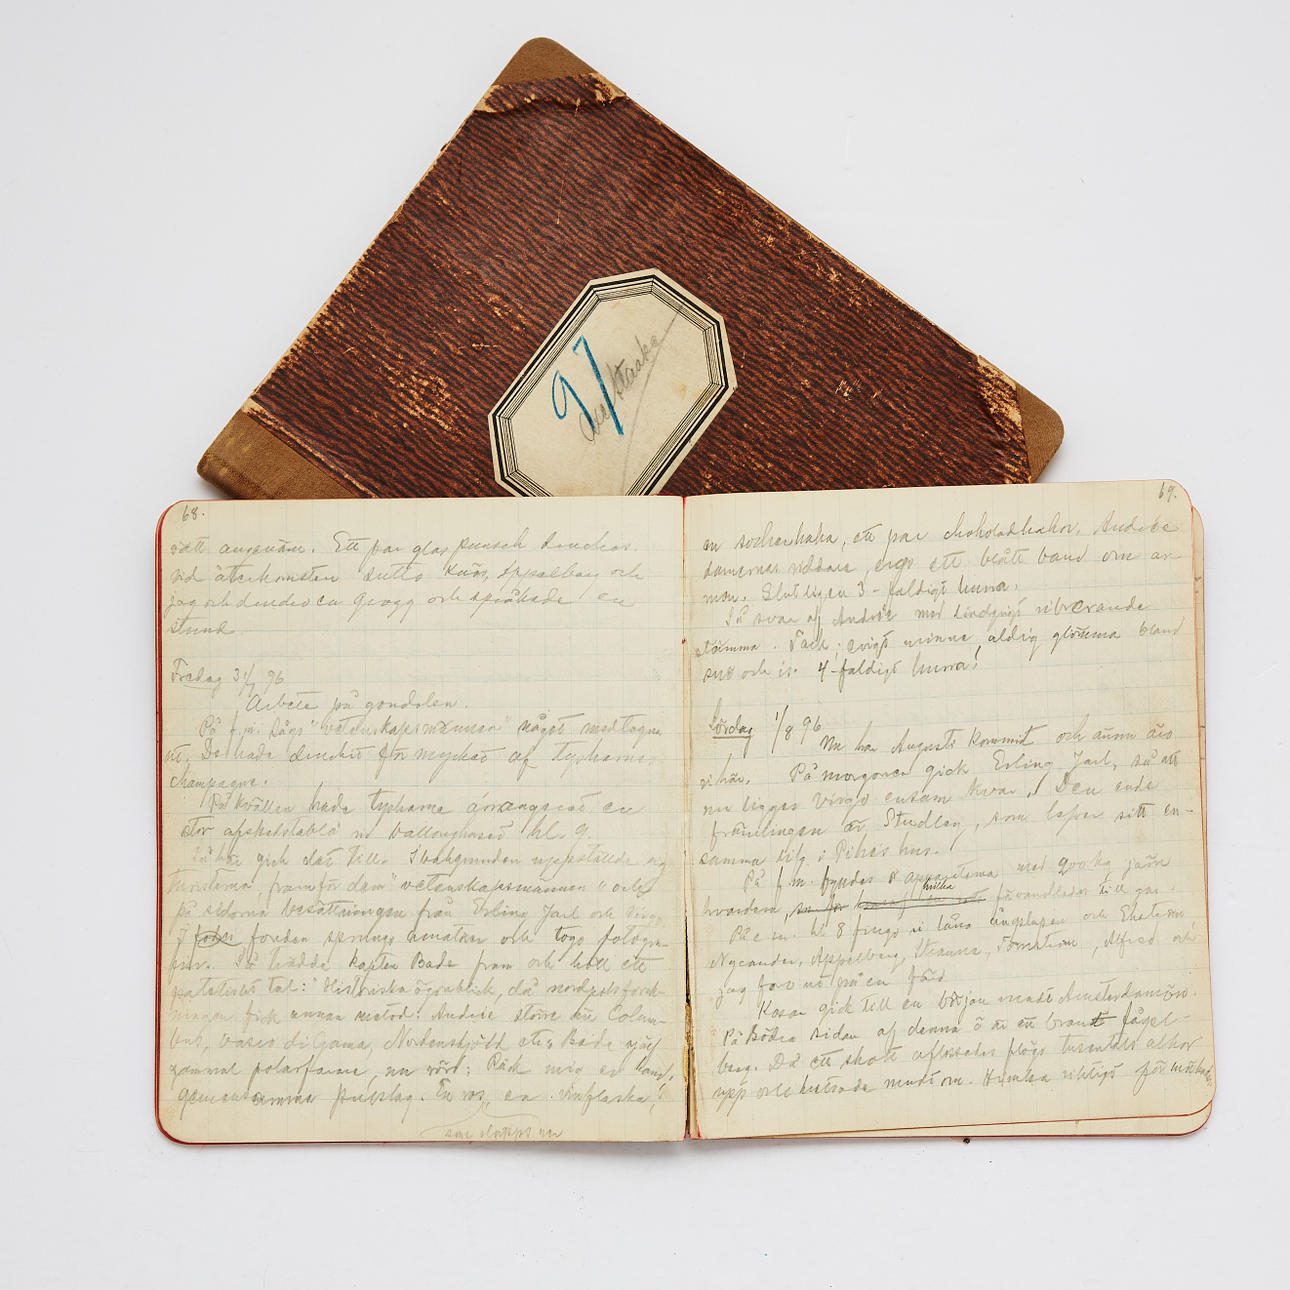 97
68.
rätt angenäm. Ett par glas punsch druckos
vid återkomsten sutto Appelberg och
jag och drucko en grogg och språkade en
stund.
Fredag 31/7 96
Arbete på gondolen.
På f.m. sågo "vetenskapsmännen" något medtagna
ut. De hade druckit för mycket af tyskarnes
champagne.
På kvällen hade tyskarne arrangerat en
stor afskedstablå vid ballonghuset kl. 9.
Så här gick det till. I bakgrunden uppställde sig
turisterna framför dem "vetenskapsmännen" och
på sidorna besättningen från Erling Jarl och Virgo
I fonden sprungo amatörer och togo fotogra-
fier. Så trädde kapten Bade fram och höll ett
patetiskt tal: "Historiska ögonblick, då nordpolsforsk-
ningen fick annan metod! Andrée större än Colum-
bus, Vasco di Gama, Nordenskjöld etc. Bade sjelf
gammal polarfarare, nu rörd; Räck mig er hand,
gemensamma förslag. En ros, en vinflaska,
som släpps ner
69.
en sockerkaka, ett par chokoladkakor. Andrée
damernas riddare, ett blått band om ar-
men. Slutligen 3-faldigt hurra.
Så svar af Andrée med lindrigt vibrerande
stämma. Tack; evigt minne, aldrig glömma bland
snö och is. 4-faldigt hurra!
Lördag 1/8 96
Nu har Augusti kommit och ännu äro
vi här. På morgonen gick Erling Jarl, så att
nu ligger Virgo ensam kvar. Den enda
främlingen är Studley, som lefver sitt en-
samma lif i Pikes hus.
På f.m. fylldes apparaterna med 900 kg järn
hvardera, hvilka förvandlades till gas.
På e.m. kl 8 fingo vi låna ångslupen och Ekholm
Nycander, Appelberg, Stake, Törnblom, Alfred och
jag foro ut på en färd
Kosan gick till en början mot Amsterdamön.
På Södra sidan af denna ö är en brant fågel-
berg. Då ett skott aflossades flögo tusentals alkor
upp och kretsade rundt om. Himlen riktigt förmörkades